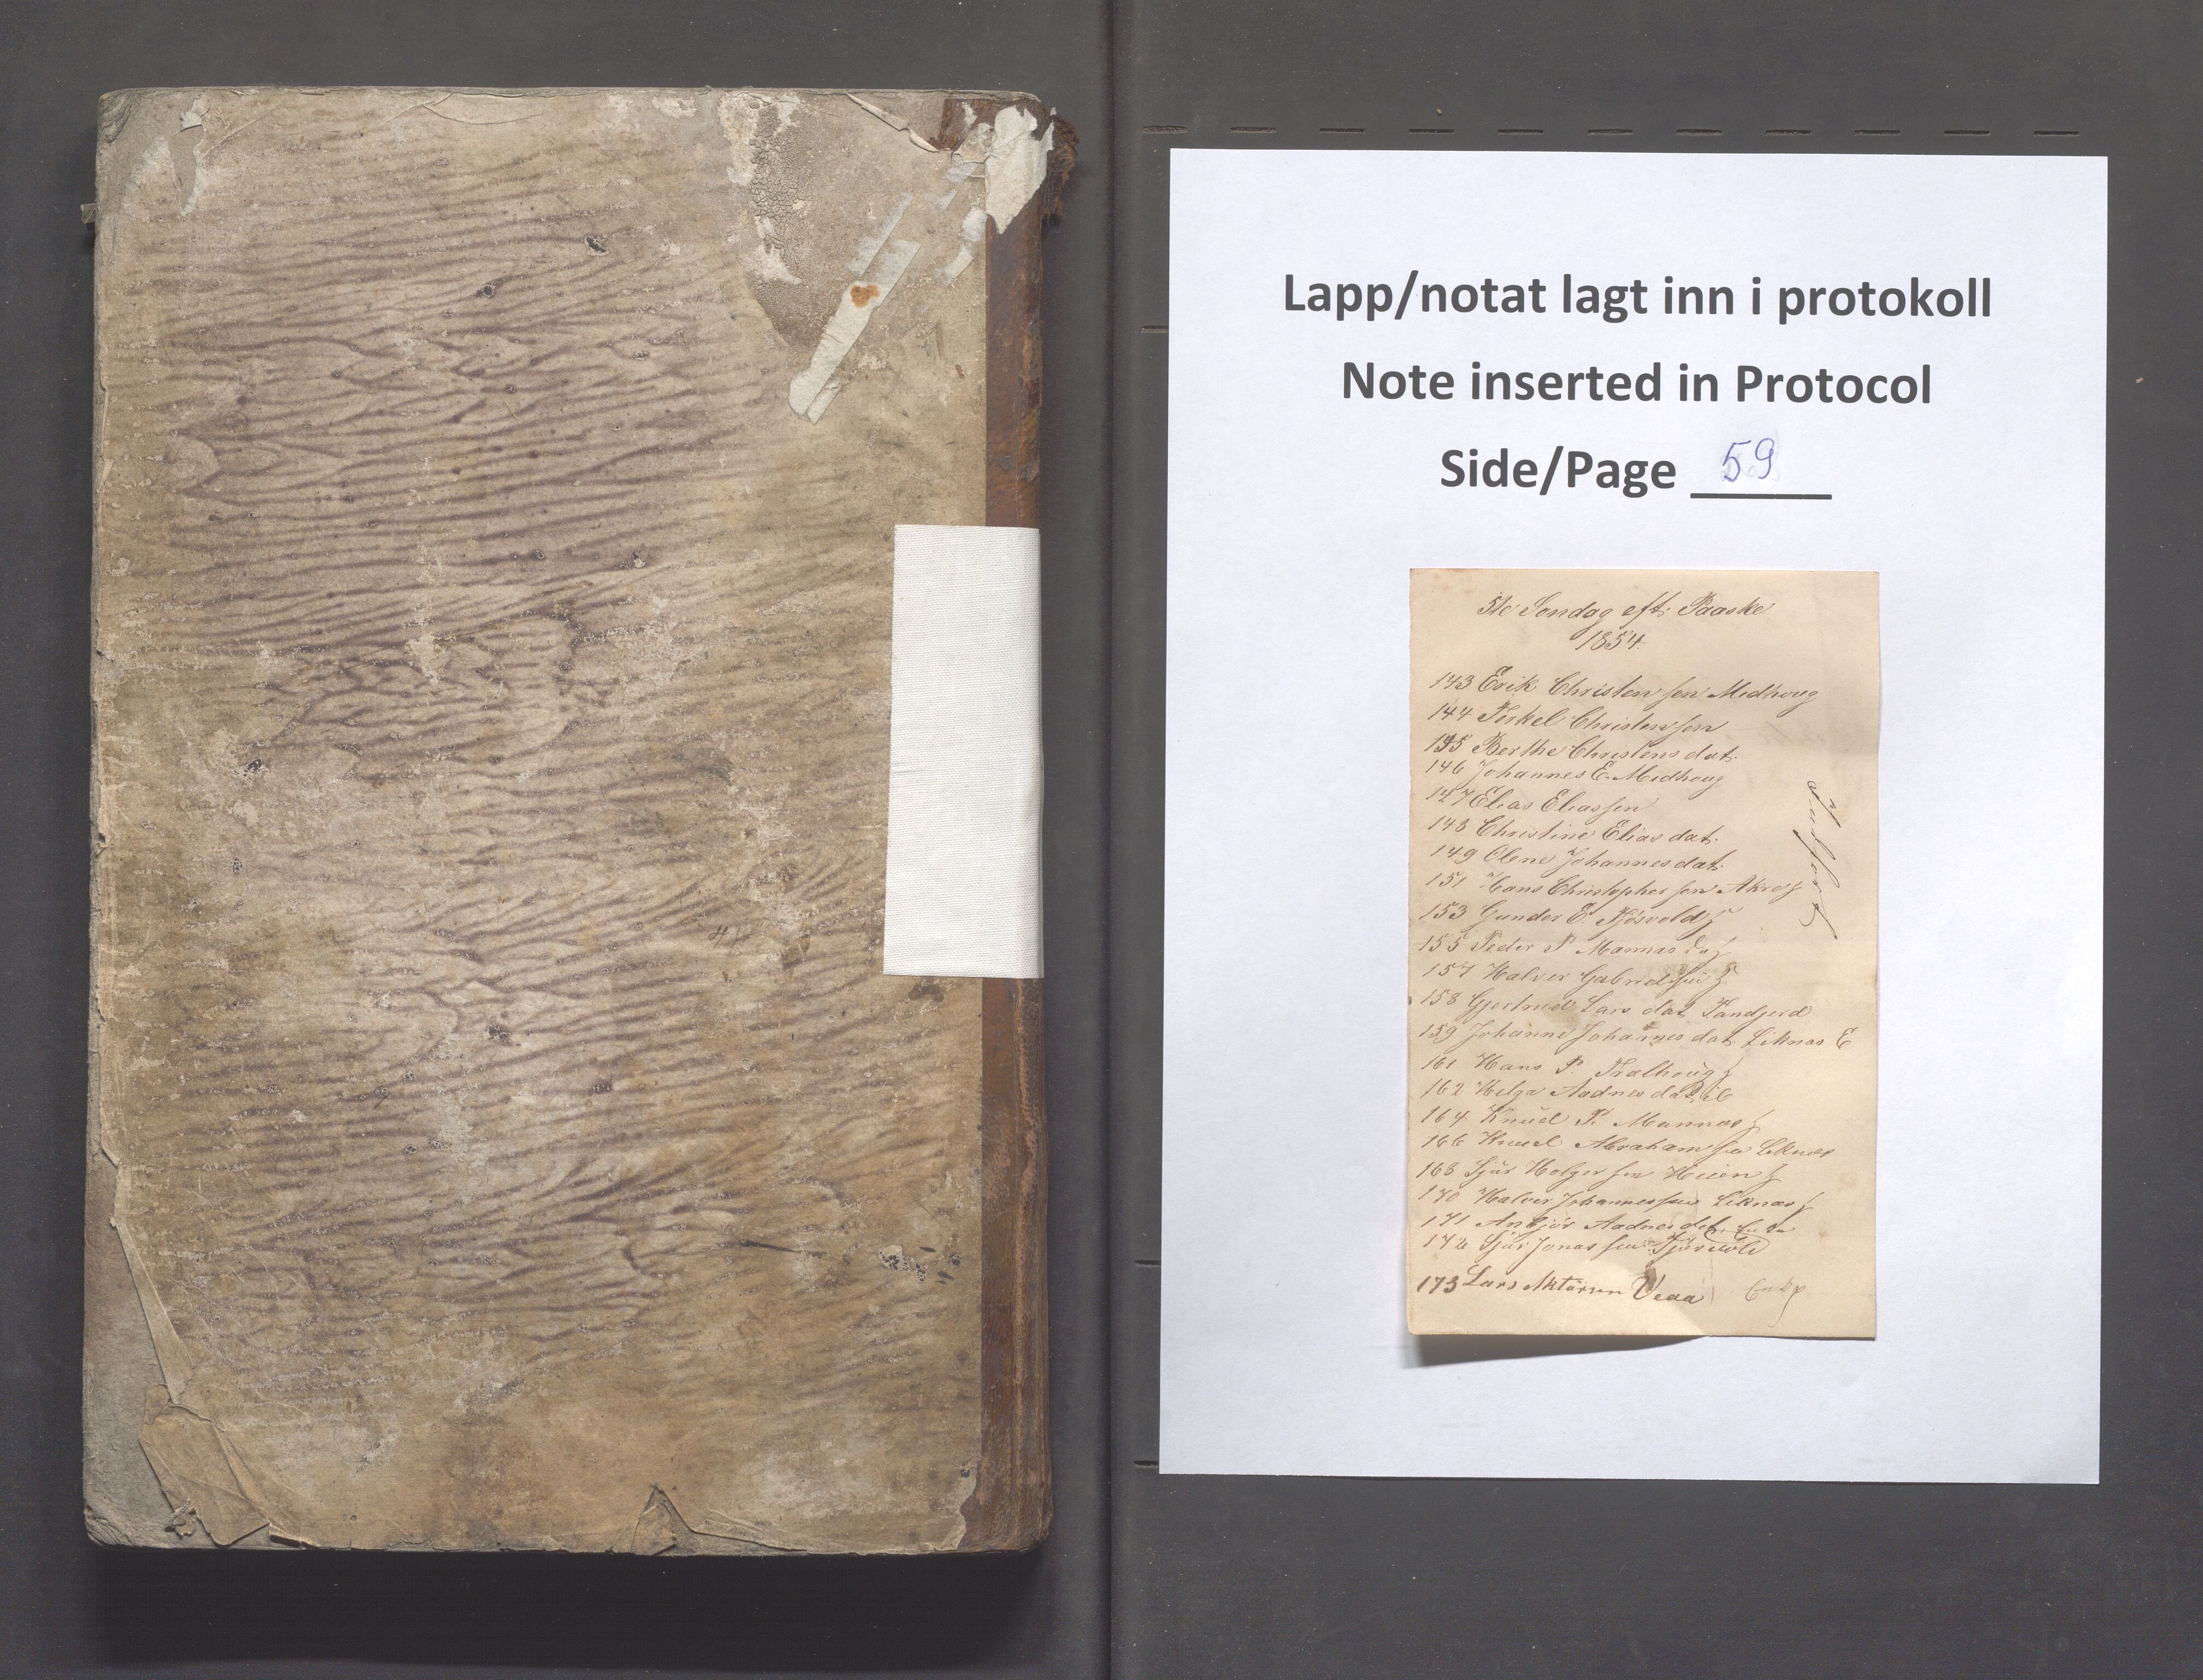 Lapp/notat lagt inn i protokoll
Note inserted in Protocol
Side/Page 59
5te Søndag eft: Paaske
1854.
143 Erik Christensen Medhoug
144 Terkel Christensen
145 Berthe Christensdat.
146 Johannes E. Medhoug
147 Elias Eliassen
148 Christine Eliasdat.
149 Olene Johannesdat.
151 Hans Christophersen Akre
153 Gunder E.
155 Peder P Mannas
157 Halver Gabrielsen
158 Gjertrud Larsdat Sandgerd
159 Johanne Johannesdat Liknas E
161 Hans P. Trælhoug
162 Helga Aadnesdat
164 Knud P. Mannas
166 Knud Abrahamsen Liknas
168 Sjur Holgersen Heien
170 Halver Johannessen Liknas
171 Aadnesdat
172 Sjur Jonassen
173 Lars Veaa Enkp
indført